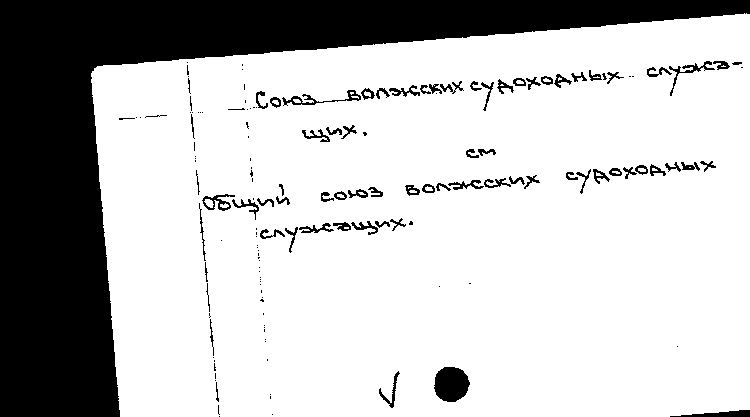 Союз волжских судоходных служа-
щих.
см
Общий союз волжских судоходных
служащих.